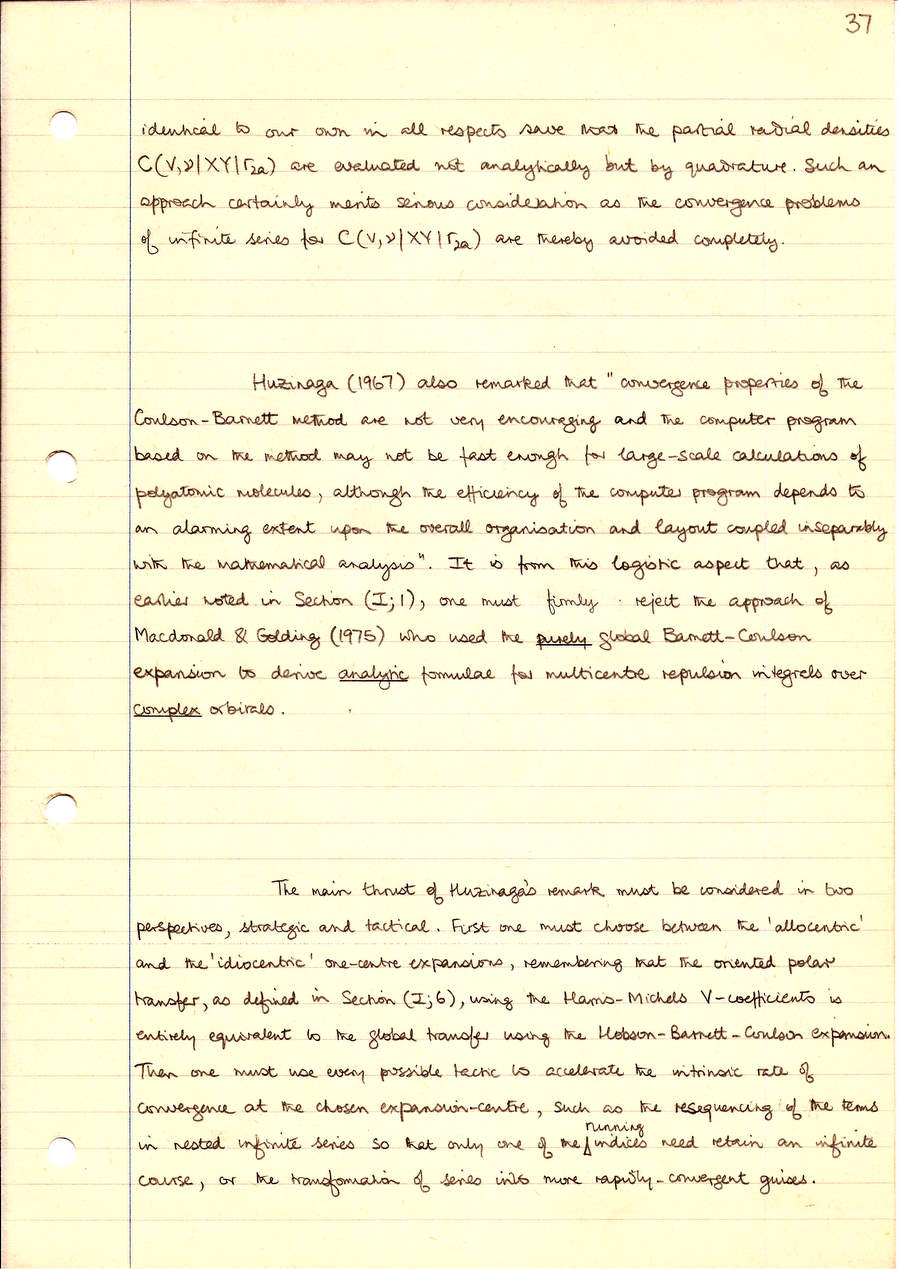 37
identical to our own in all respects save that the partial radial densities
C(V,ν|XY|r₂ₐ) are evaluated not analytically but by quadrature. Such an
approach certainly merits serious consideration as the convergence problems
of infinite series for C(V,ν|XY|r₂ₐ) are thereby avoided completely.
Huzinaga (1967) also remarked that "convergence properties of the
Coulson-Barnett method are not very encouraging and the computer program
based on the method may not be fast enough for large-scale calculations of
polyatomic molecules, although the efficiency of the computer program depends to
an alarming extent upon the overall organisation and layout coupled inseparably
with the mathematical analysis". It is from this logistic aspect that, as
earlier noted in Section (I;1), one must firmly reject the approach of
Macdonald & Golding (1975) who used the purely global Barnett-Coulson
expansion to derive analytic formulae for multicentre repulsion integrals over
complex orbitals.
The main thrust of Huzinaga's remark must be considered in two
perspectives, strategic and tactical. First one must choose between the 'allocentric'
and the 'idiocentric' one-centre expansions, remembering that the oriented polar
transfer, as defined in Section (I;6), using the Harris-Michels V-coefficients is
entirely equivalent to the global transfer using the Hobson-Barnett-Coulson expansion.
Then one must use every possible tactic to accelerate the intrinsic rate of
convergence at the chosen expansion-centre, such as the resequencing of the terms
in nested infinite series so that only one of the running indices need retain an infinite
course, or the transformation of series into more rapidly-convergent guises.